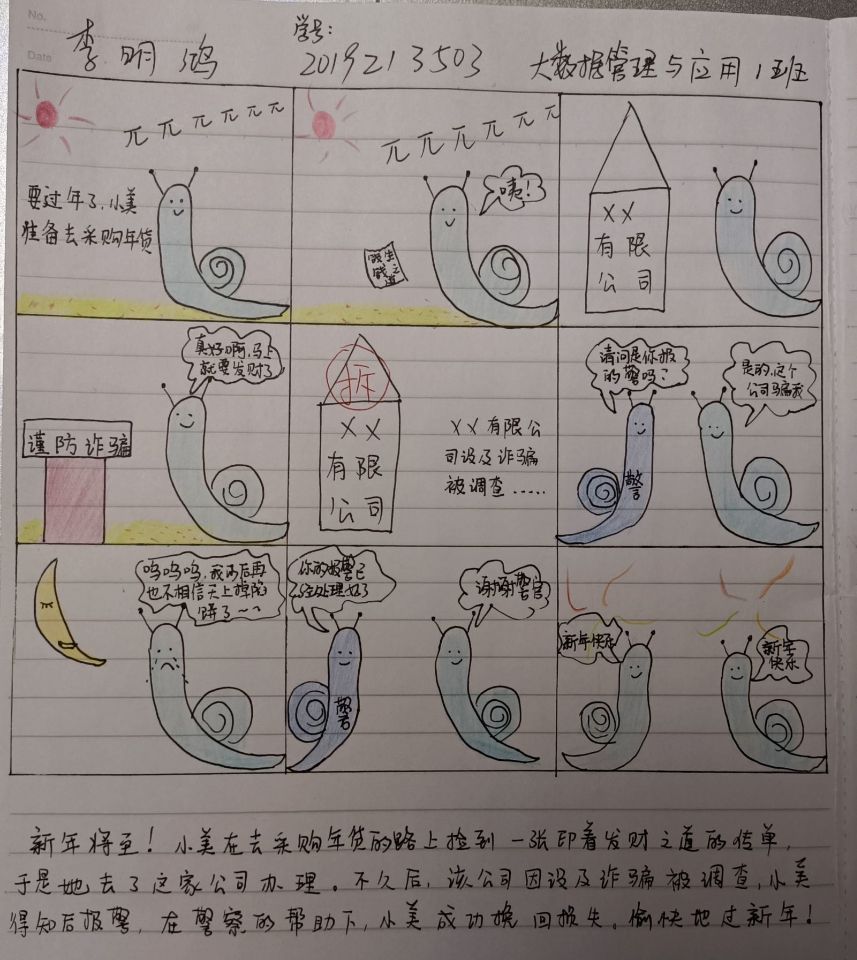 No.
Date
李明鸿
学号:
2019213503
大数据管理与应用1班
要过年了,小美
准备去采购年货
咦!
之道
XX
有限
公司
真好啊,马上
就要发财了
谨防诈骗
拆
XX
有限
公司
XX有限公
司设及诈骗
被调查……
请问是你报
的警吗?
是的,这个
公司骗我
警
呜呜呜,我以后再
也不相信天上掉馅
饼了~~
你的报警已
经处理好了
谢谢警官
警
新年快乐
新年
快乐
新年将至!小美在去采购年货的路上捡到一张印着发财之道的传单,
于是她去了这家公司办理。不久后,该公司因设及诈骗被调查,小美
得知后报警,在警察的帮助下,小美成功挽回损失。愉快地过新年!